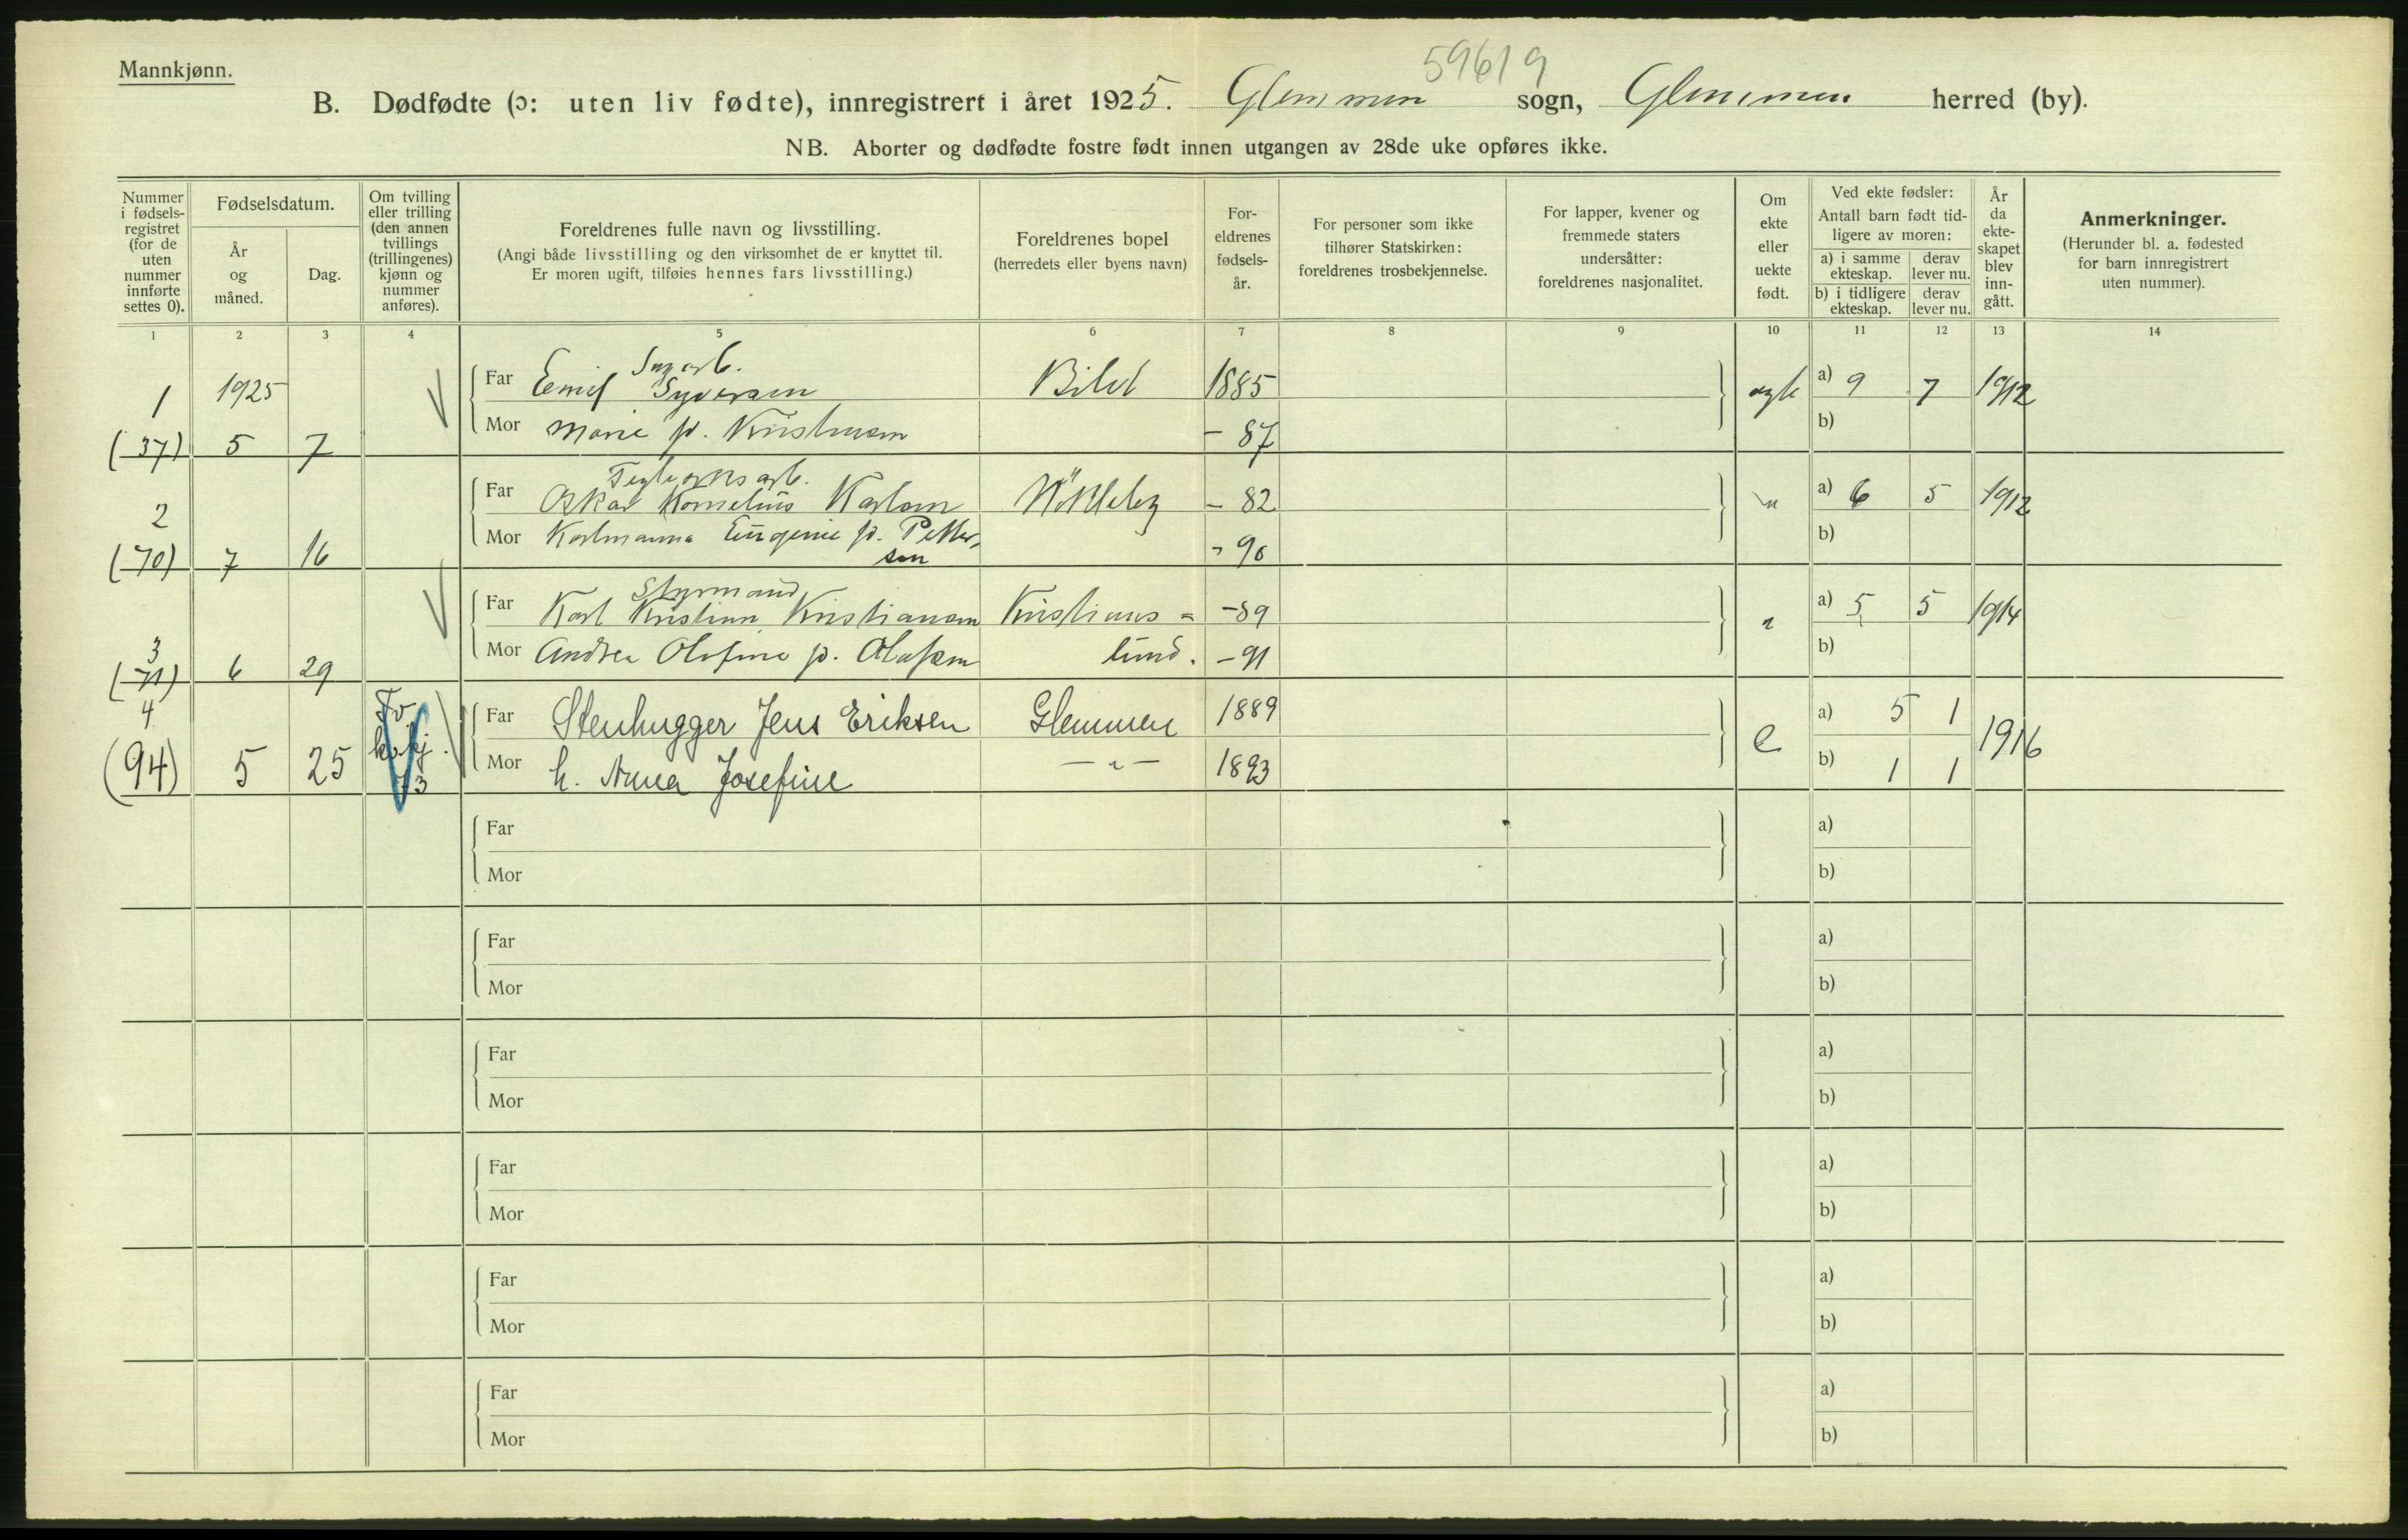 59619
Mannkjønn.
B. Dødfødte (ɔ: uten liv fødte), innregistrert i året 1925. Glemmen sogn, Glemmen herred (by).
NB. Aborter og dødfødte fostre født innen utgangen av 28de uke opføres ikke.
Nummer i fødsels-registret (for de uten nummer innførte settes 0).
Fødselsdatum.
År og måned.
Dag.
Om tvilling eller trilling (den annen tvillings (trillingenes) kjønn og nummer anføres).
Foreldrenes fulle navn og livsstilling.
(Angi både livsstilling og den virksomhet de er knyttet til.
Er moren ugift, tilføies hennes fars livsstilling.)
Foreldrenes bopel
(herredets eller byens navn)
For-eldrenes fødsels-år.
For personer som ikke tilhører Statskirken: foreldrenes trosbekjennelse.
For lapper, kvener og fremmede staters undersåtter: foreldrenes nasjonalitet.
Om ekte eller uekte født.
Ved ekte fødsler:
Antall barn født tid-ligere av moren:
a) i samme ekteskap.
derav lever nu.
b) i tidligere ekteskap.
derav lever nu.
År da ekte-skapet blev inn-gått.
Anmerkninger.
(Herunder bl. a. fødested for barn innregistrert uten nummer).
1 2 3 4 5 6 7 8 9 10 11 12 13 14
1 1925 Far Emil Syversen 1885 a) 9 7 1912
(37) 5 7 Mor Marie f. - 87 b)
2 Far Oskar Kornelius Karlsen - 82 a) 6 5 1912
(70) 7 16 Mor Eugenie f. Petter- - 90 b)
sen
Styrmand
3 Far Karl Kristian Kristiansen Kristians= -89 a) 5 5 1914
(71) 6 29 Mor Andrea Olefine f. Olafsen lund. -91 b)
4 Tv. Far Stenhugger Jens Eriksen Glemmen 1889 e a) 5 1 1916
(94) 5 25 kv.kj. 73 Mor h. Anna Josefine —"— 1893 b) 1 1
Far a)
Mor b)
Far a)
Mor b)
Far a)
Mor b)
Far a)
Mor b)
Far a)
Mor b)
Far a)
Mor b)